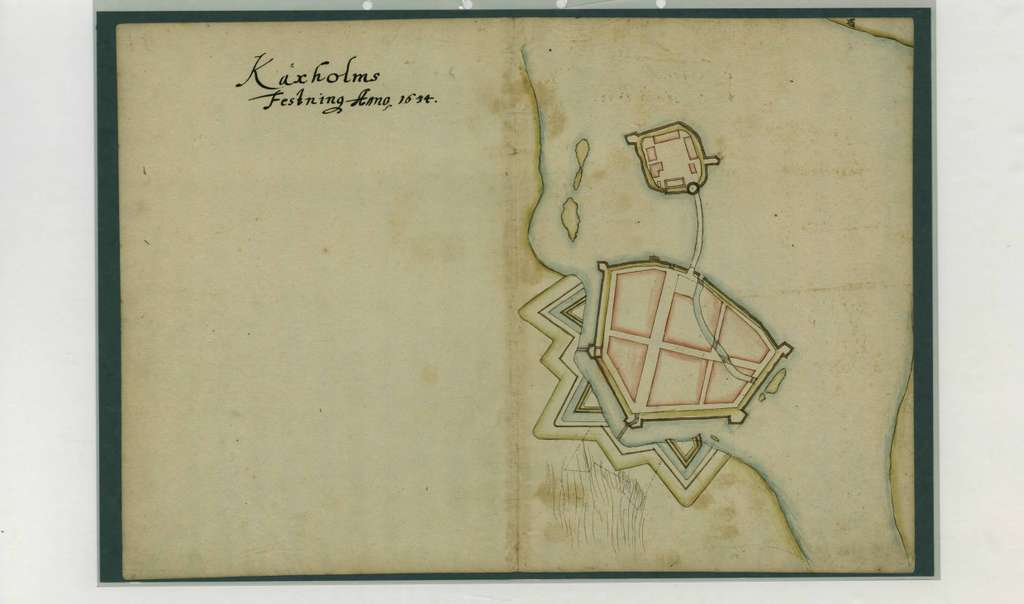 Käxholms
Festning Anno, 1634.